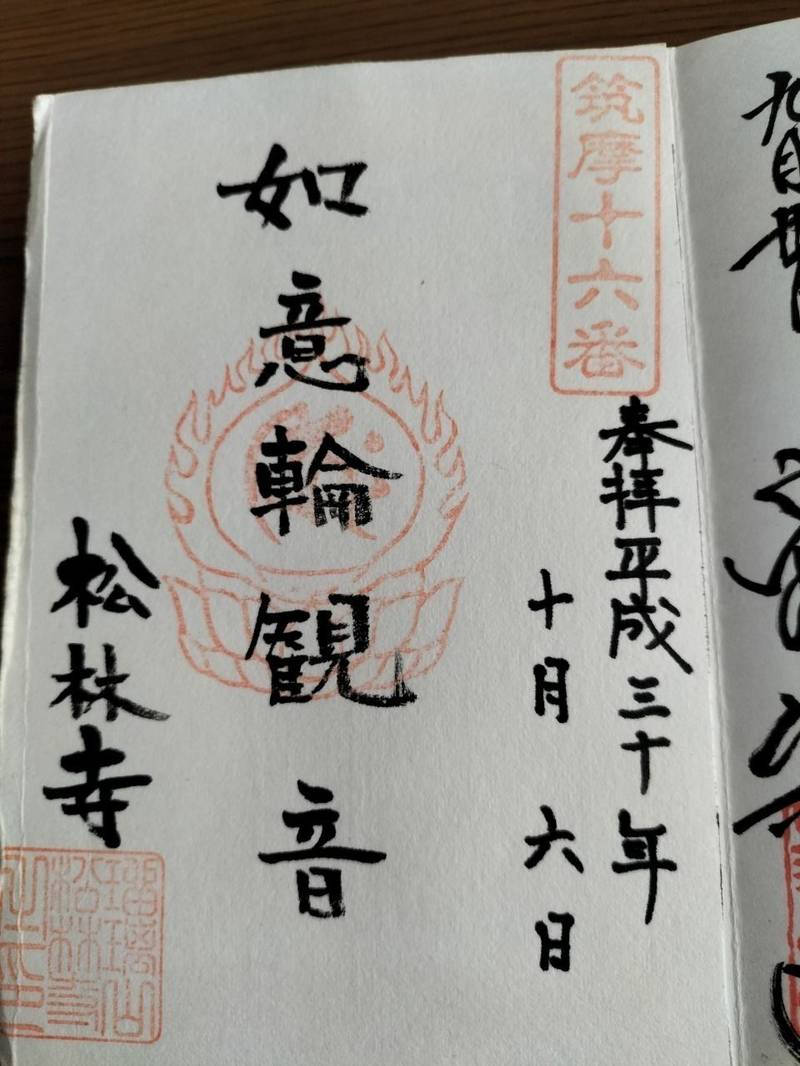 筑摩十六番
奉拝平成三十年
十月六日
如意輪観音
松林寺